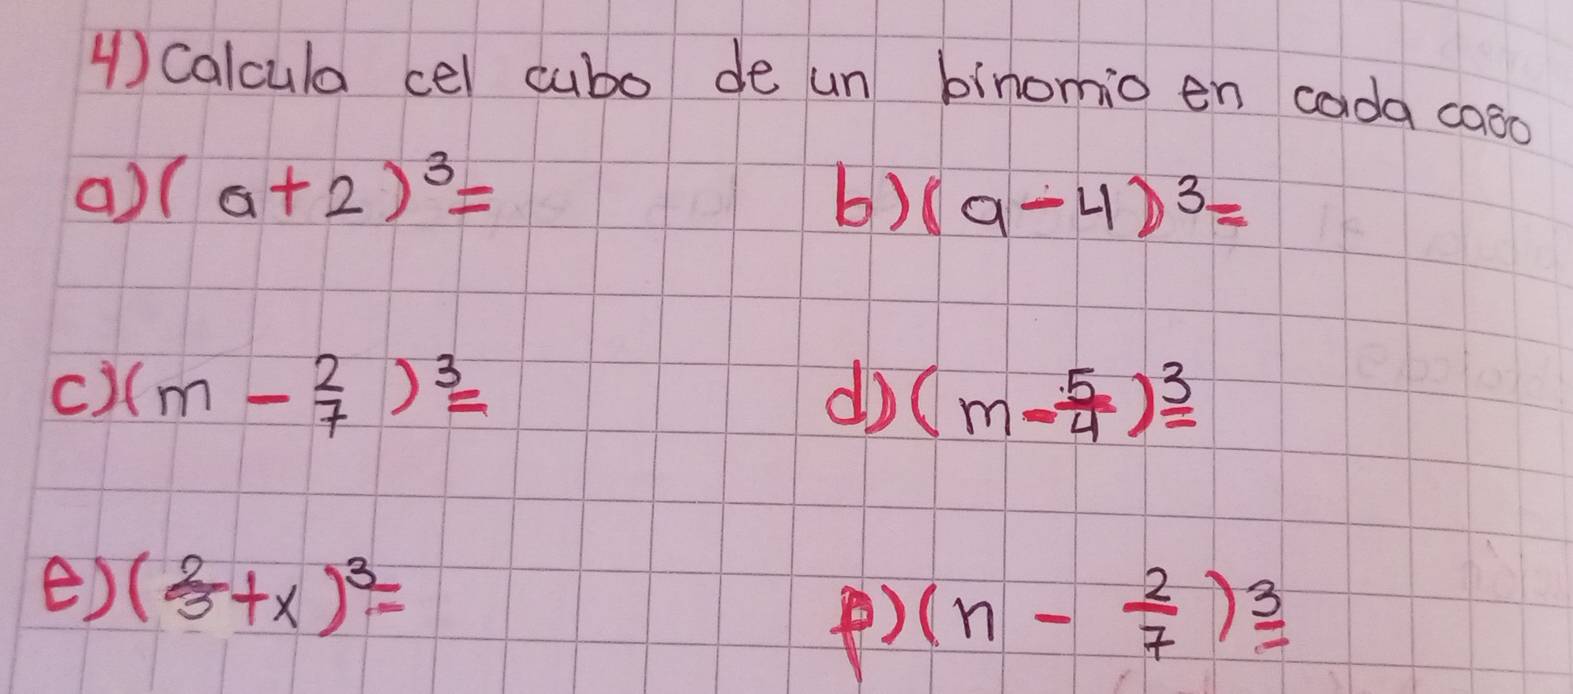 4) Calcula cel cubo de un binomio en cada caso
a) (a + 2)³ = b) (a - 4)³ =
c) (m - 2/7)³ = d) (m - 5/4)³ =
e) (2/3 + x)³ = f) (n - 2/7)³ =